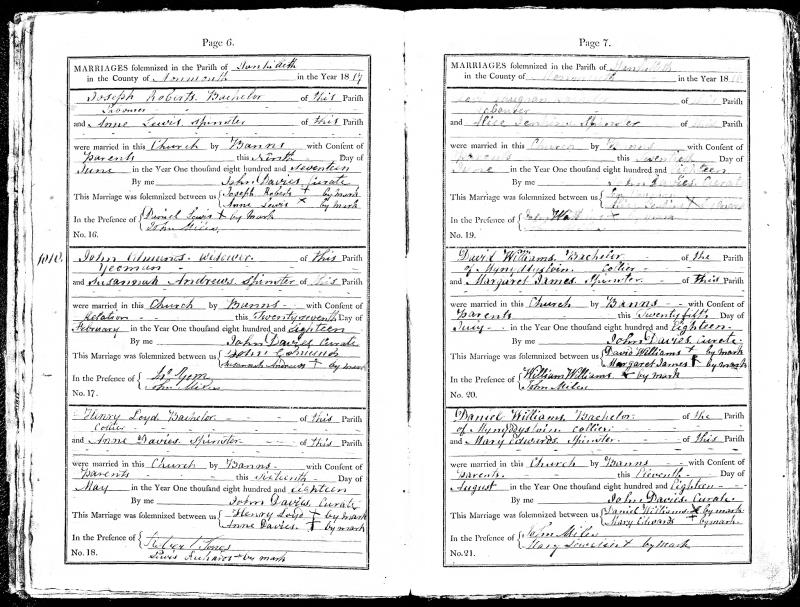 Page 6.
MARRIAGES solemnized in the Parish of
in the County of Monmouth in the Year 1817
Joseph Roberts Bachelor of this Parish
Labourer
and Anne Lewis Spinster of this Parish
were married in this Church by Banns with Consent of
Parents this Day of
June in the Year One thousand eight hundred and Seventeen
By me John Davies Curate
This Marriage was solemnized between us Joseph Roberts + by mark
Anne Lewis × by mark
In the Presence of Daniel Lewis + by mark
John Miles
No. 16.
1818.
John Edmunds Widower of this Parish
Yeoman
and Susannah Andrews Spinster of this Parish
were married in this Church by Banns with Consent of
Relation this Twenty seventh Day of
February in the Year One thousand eight hundred and Eighteen
By me John Davies Curate
This Marriage was solemnized between us John Edmunds
Susannah Andrews + by mark
In the Presence of
John Miles
No. 17.
Henry Loyd Bachelor of this Parish
Collier
and Anne Davies Spinster of this Parish
were married in this Church by Banns with Consent of
Parents this Sixteenth Day of
May in the Year One thousand eight hundred and Eighteen
By me John Davies Curate
This Marriage was solemnized between us Henry Loyd + by mark
Anne Davies + by mark
In the Presence of
Lewis Richards + by mark
No. 18.
Page 7.
MARRIAGES solemnized in the Parish of
in the County of Monmouth in the Year 18
of this Parish
Labourer
and Alice Spinster of this Parish
were married in this Church by Banns with Consent of
Parents this Day of
June in the Year One thousand eight hundred and Eighteen
By me John Davies Curate
This Marriage was solemnized between us
In the Presence of
No. 19.
David Williams Bachelor of the Parish
of Mynyddyslwin Collier
and Margaret James Spinster of this Parish
were married in this Church by Banns with Consent of
Parents this Twenty fifth Day of
July in the Year One thousand eight hundred and Eighteen
By me John Davies Curate
This Marriage was solemnized between us David Williams + by mark
Margaret James + by mark
In the Presence of William Williams × by mark
John Miles
No. 20.
Daniel Williams Bachelor of the Parish
of Mynyddyslwin Collier
and Mary Edwards Spinster of this Parish
were married in this Church by Banns with Consent of
Parents this Eleventh Day of
August in the Year One thousand eight hundred and Eighteen
By me John Davies Curate
This Marriage was solemnized between us Daniel Williams × by mark
Mary Edwards + by mark
In the Presence of John Miles
Mary + by mark
No. 21.